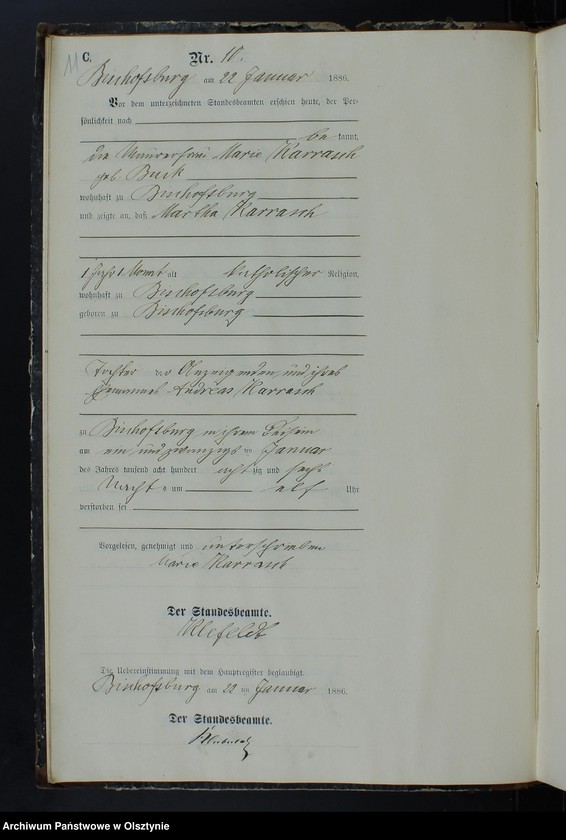 11
C.
Nr. 10.
Bischofsburg am 22 Januar 1886.
Vor dem unterzeichneten Standesbeamten erschien heute, der Per-
sönlichkeit nach
be kannt,
die Maurerfrau Marie Karrasch
geb. Buck
wohnhaft zu Bischofsburg
und zeigte an, daß Martha Karrasch
1 Jahr 1 Monat alt katholischer Religion,
wohnhaft zu Bischofsburg
geboren zu Bischofsburg
Tochter der Anzeigenden und ihres
Ehemannes Andreas Karrasch
zu Bischofsburg in ihrem
am ein und zwanzigsten Januar
des Jahres tausend acht hundert achtzig und sechs
Nachts um elf Uhr
verstorben sei
Vorgelesen, genehmigt und unterschrieben
Marie Karrasch
Der Standesbeamte.
Klefeldt
Die Uebereinstimmung mit dem Hauptregister beglaubigt.
Bischofsburg am 22 ten Januar 1886.
Der Standesbeamte.
Archiwum Państwowe w Olsztynie